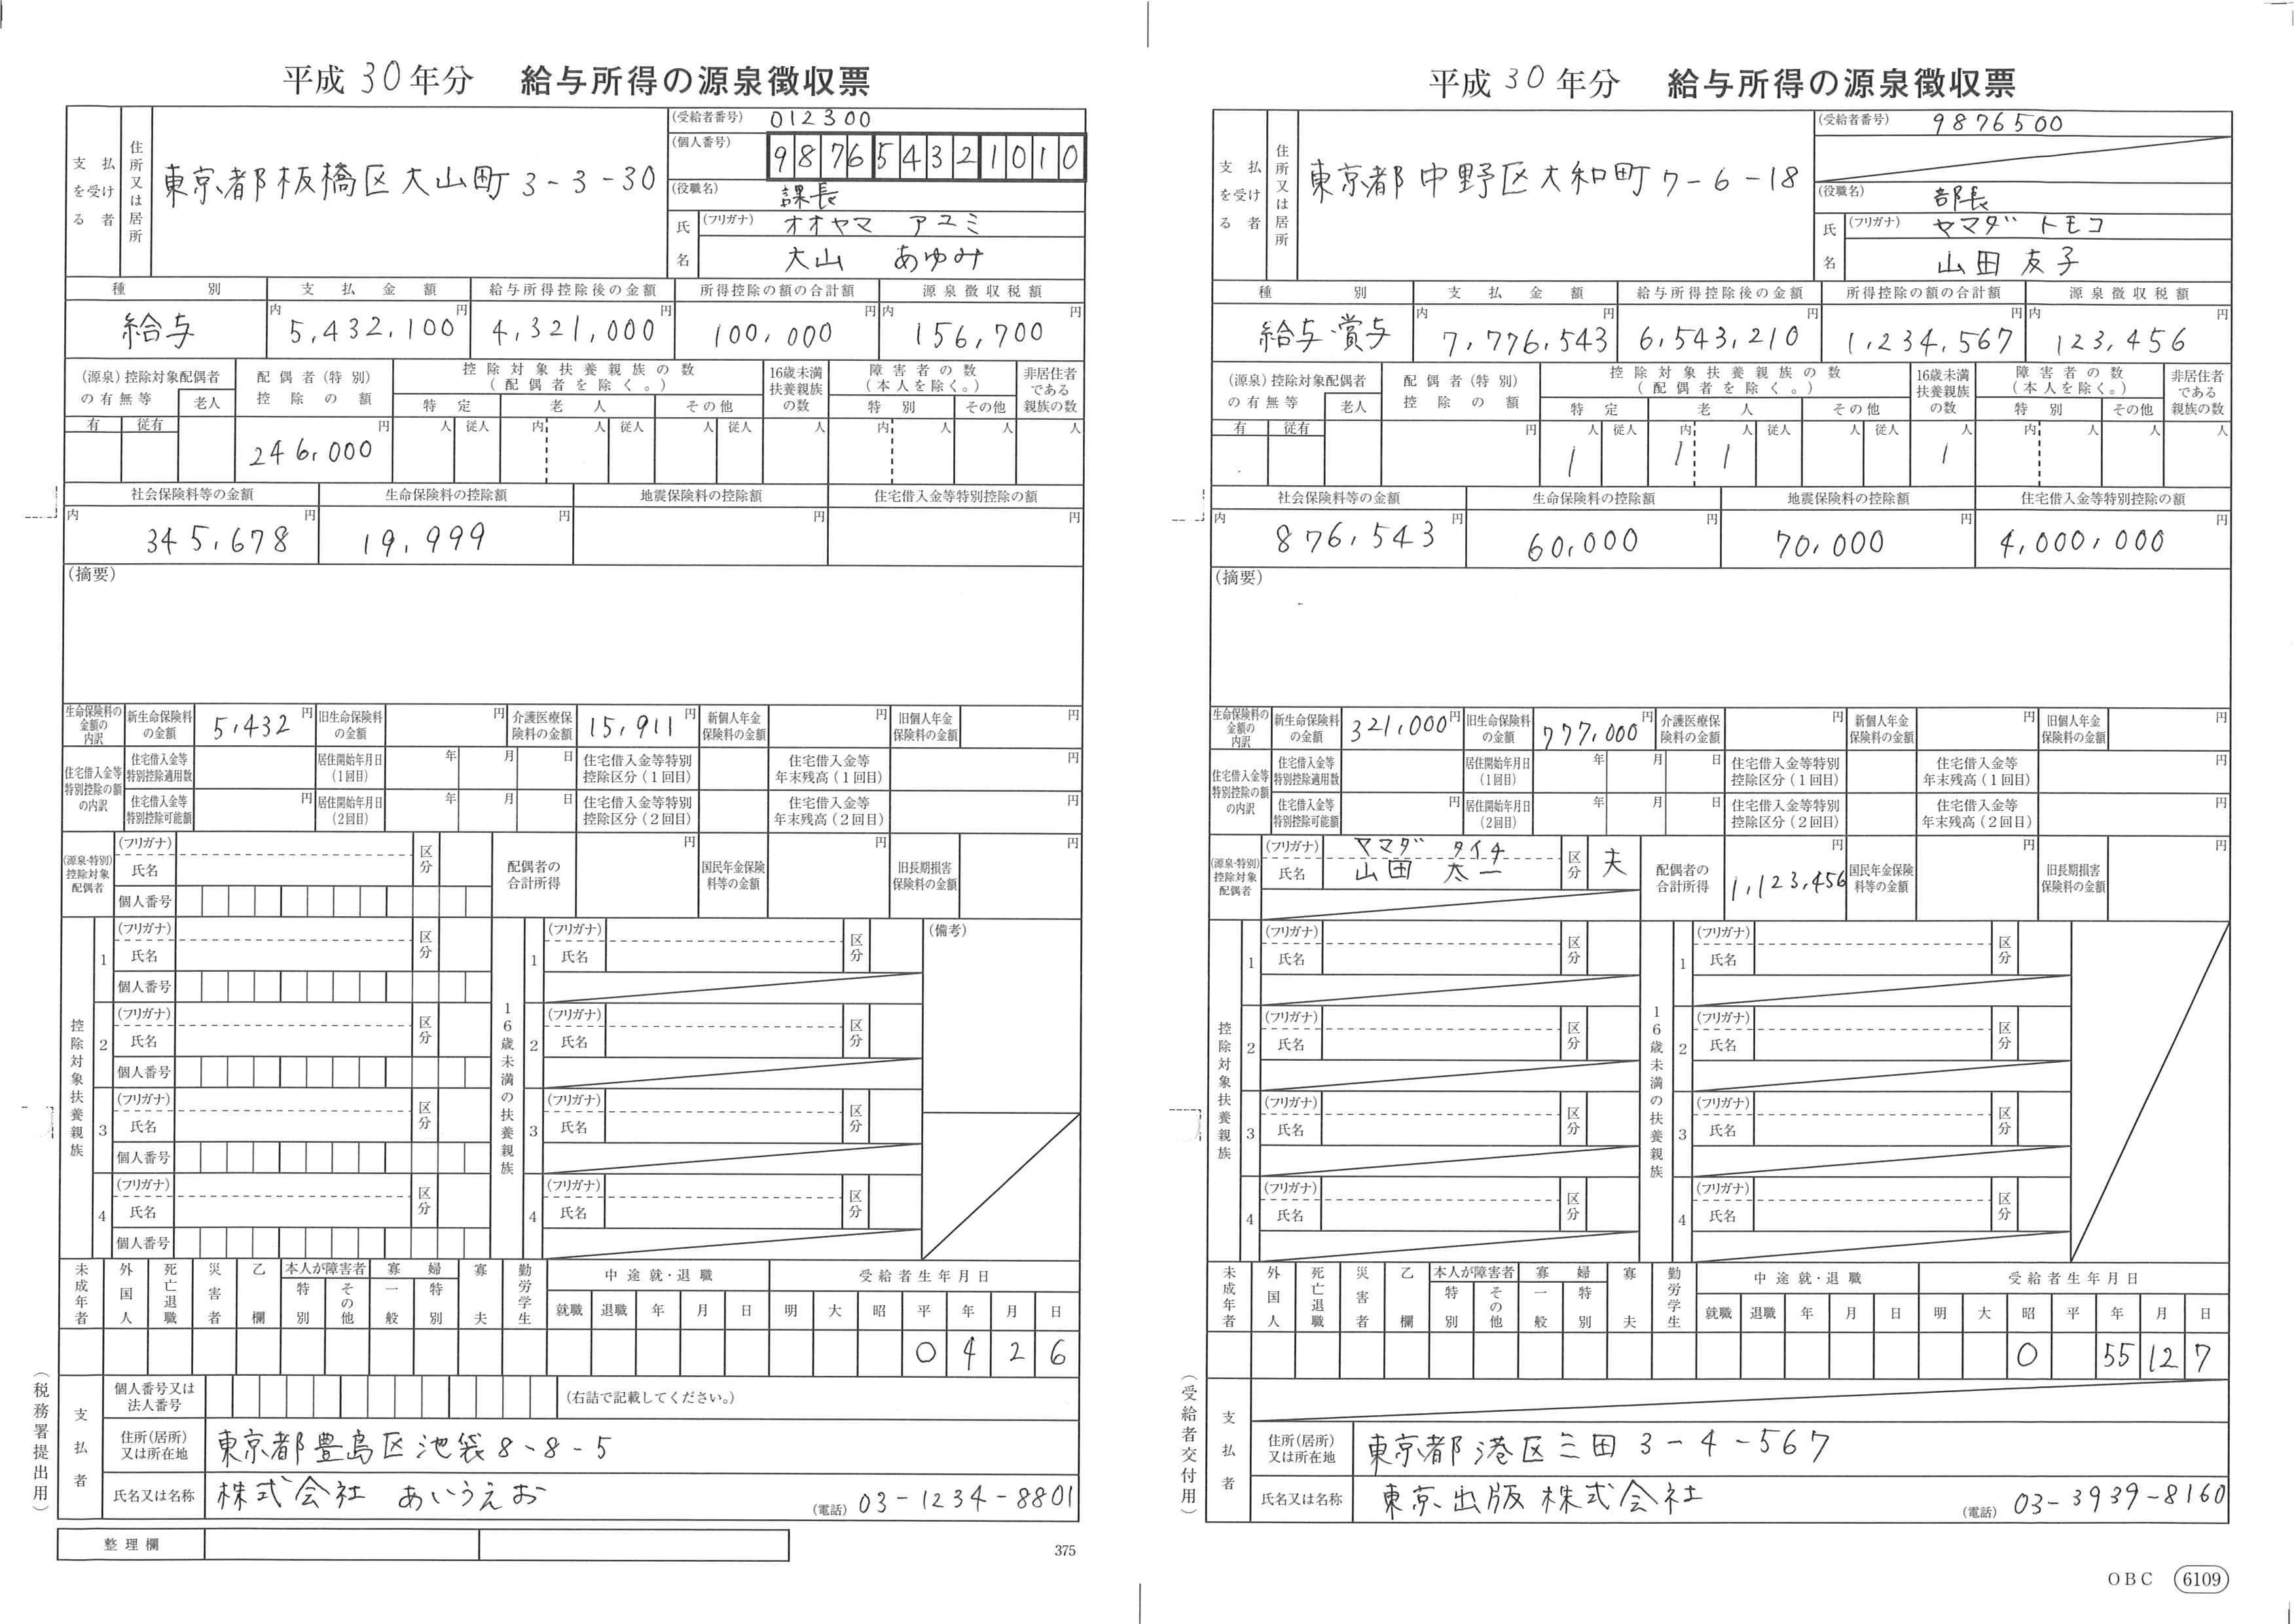 平成 30 年分 給与所得の源泉徴収票
支払を受ける者
住所又は居所
東京都板橋区大山町 3-3-30
(受給者番号) 012300
(個人番号) 987654321010
(役職名) 課長
氏名
(フリガナ) オオヤマ アユミ
大山 あゆみ
種別 支払金額 給与所得控除後の金額 所得控除の額の合計額 源泉徴収税額
給与 内 5,432,100 円 4,321,000 円 100,000 円 内 156,700 円
(源泉)控除対象配偶者の有無等 老人 配偶者(特別)控除の額 控除対象扶養親族の数(配偶者を除く。) 16歳未満扶養親族の数 障害者の数(本人を除く。) 非居住者である親族の数
特定 老人 その他 特別 その他
有 従有 円 人 従人 内 人 従人 人 従人 人 内 人 人 人
246,000
社会保険料等の金額 生命保険料の控除額 地震保険料の控除額 住宅借入金等特別控除の額
内 345,678 円 19,999 円 円 円
(摘要)
生命保険料の金額の内訳 新生命保険料の金額 5,432 円 旧生命保険料の金額 円 介護医療保険料の金額 15,911 円 新個人年金保険料の金額 円 旧個人年金保険料の金額 円
住宅借入金等特別控除の額の内訳
住宅借入金等特別控除適用数 居住開始年月日(1回目) 年 月 日 住宅借入金等特別控除区分(1回目) 住宅借入金等年末残高(1回目) 円
住宅借入金等特別控除可能額 円 居住開始年月日(2回目) 年 月 日 住宅借入金等特別控除区分(2回目) 住宅借入金等年末残高(2回目) 円
(源泉・特別)控除対象配偶者 (フリガナ) 氏名 区分 個人番号 配偶者の合計所得 円 国民年金保険料等の金額 円 旧長期損害保険料の金額 円
控除対象扶養親族 16歳未満の扶養親族 (備考)
1 (フリガナ) 氏名 区分 個人番号 1 (フリガナ) 氏名 区分
2 (フリガナ) 氏名 区分 個人番号 2 (フリガナ) 氏名 区分
3 (フリガナ) 氏名 区分 個人番号 3 (フリガナ) 氏名 区分
4 (フリガナ) 氏名 区分 個人番号 4 (フリガナ) 氏名 区分
未成年者 外国人 死亡退職 災害者 乙欄 本人が障害者 特別 その他 寡婦 一般 特別 寡夫 勤労学生 中途就・退職 受給者生年月日
就職 退職 年 月 日 明 大 昭 平 年 月 日
0 4 2 6
(税務署提出用)
支払者
個人番号又は法人番号 (右詰で記載してください。)
住所(居所)又は所在地 東京都豊島区池袋 8-8-5
氏名又は名称 株式会社 あいうえお (電話) 03-1234-8801
整理欄
375
平成 30 年分 給与所得の源泉徴収票
支払を受ける者
住所又は居所
東京都中野区大和町 7-6-18
(受給者番号) 9876500
(役職名) 部長
氏名
(フリガナ) ヤマダ トモコ
山田 友子
種別 支払金額 給与所得控除後の金額 所得控除の額の合計額 源泉徴収税額
給与・賞与 内 7,776,543 円 6,543,210 円 1,234,567 円 内 123,456 円
(源泉)控除対象配偶者の有無等 老人 配偶者(特別)控除の額 控除対象扶養親族の数(配偶者を除く。) 16歳未満扶養親族の数 障害者の数(本人を除く。) 非居住者である親族の数
特定 老人 その他 特別 その他
有 従有 円 人 従人 内 人 従人 人 従人 人 内 人 人 人
1 1 1 1
社会保険料等の金額 生命保険料の控除額 地震保険料の控除額 住宅借入金等特別控除の額
内 876,543 円 60,000 円 70,000 円 4,000,000 円
(摘要)
生命保険料の金額の内訳 新生命保険料の金額 321,000 円 旧生命保険料の金額 777,000 円 介護医療保険料の金額 円 新個人年金保険料の金額 円 旧個人年金保険料の金額 円
住宅借入金等特別控除の額の内訳
住宅借入金等特別控除適用数 居住開始年月日(1回目) 年 月 日 住宅借入金等特別控除区分(1回目) 住宅借入金等年末残高(1回目) 円
住宅借入金等特別控除可能額 円 居住開始年月日(2回目) 年 月 日 住宅借入金等特別控除区分(2回目) 住宅借入金等年末残高(2回目) 円
(源泉・特別)控除対象配偶者 (フリガナ) ヤマダ タイチ 氏名 山田 太一 区分 夫 配偶者の合計所得 1,123,456 円 国民年金保険料等の金額 円 旧長期損害保険料の金額 円
控除対象扶養親族 16歳未満の扶養親族
1 (フリガナ) 氏名 区分 1 (フリガナ) 氏名 区分
2 (フリガナ) 氏名 区分 2 (フリガナ) 氏名 区分
3 (フリガナ) 氏名 区分 3 (フリガナ) 氏名 区分
4 (フリガナ) 氏名 区分 4 (フリガナ) 氏名 区分
未成年者 外国人 死亡退職 災害者 乙欄 本人が障害者 特別 その他 寡婦 一般 特別 寡夫 勤労学生 中途就・退職 受給者生年月日
就職 退職 年 月 日 明 大 昭 平 年 月 日
0 55 12 7
(受給者交付用)
支払者
住所(居所)又は所在地 東京都港区三田 3-4-567
氏名又は名称 東京出版株式会社 (電話) 03-3939-8160
OBC 6109